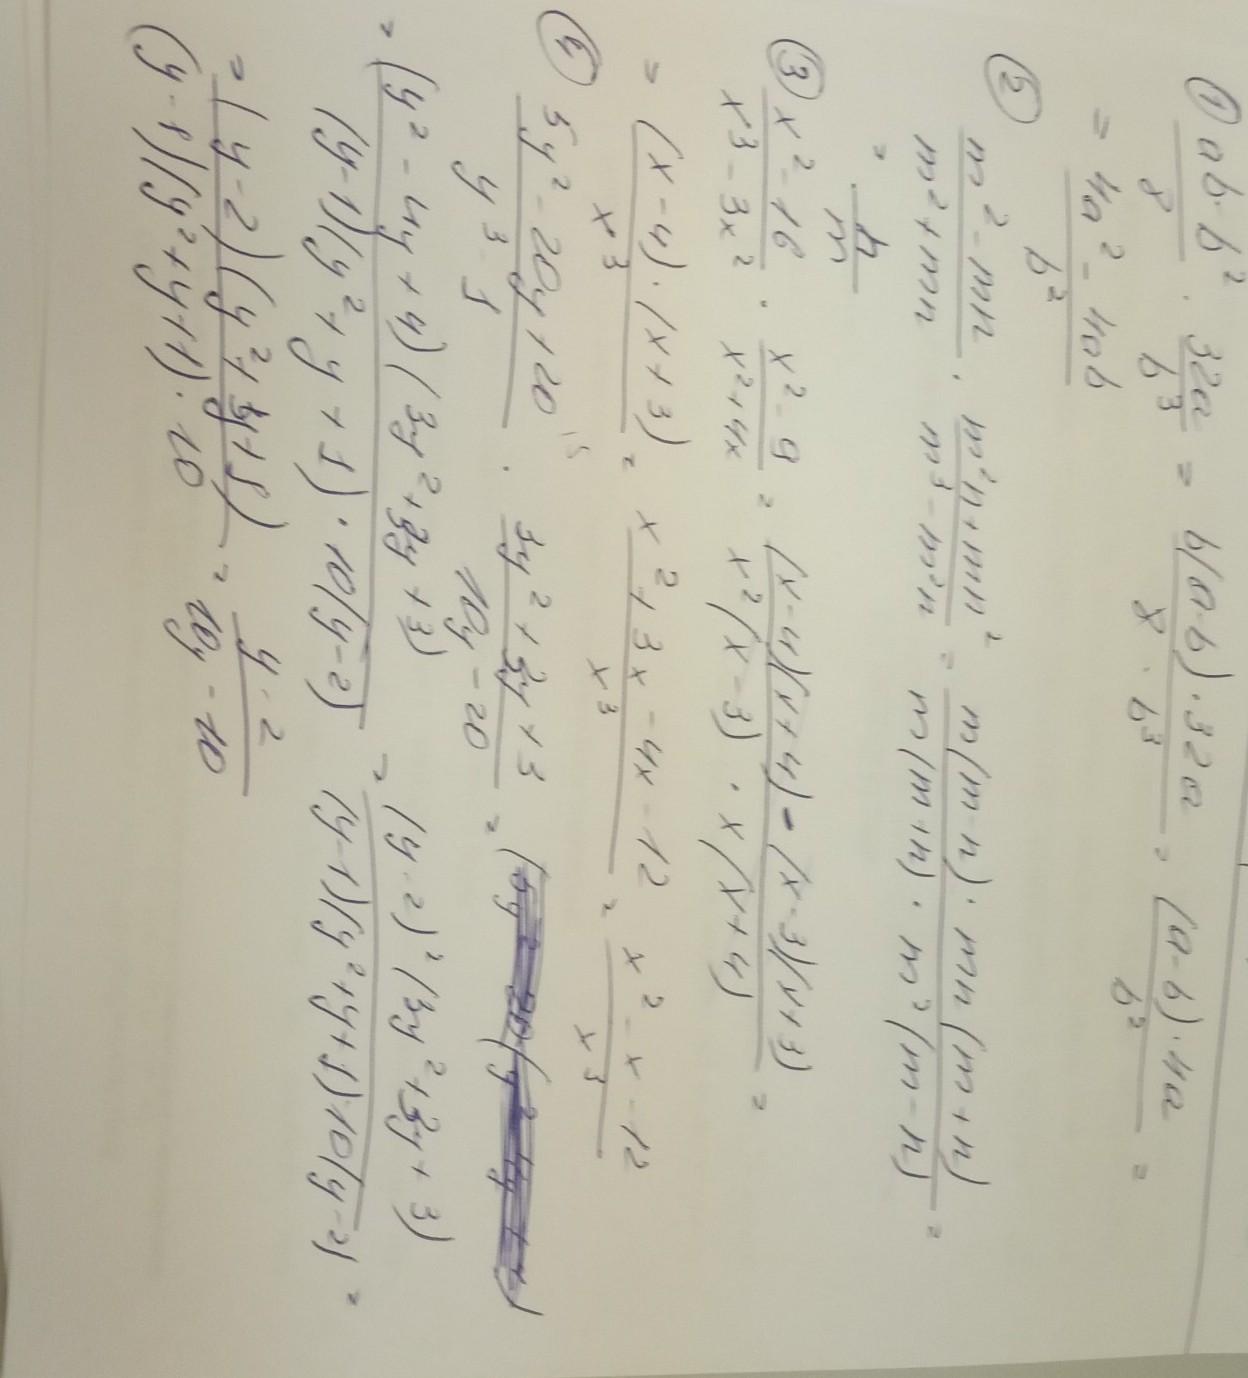 ① (ab-b²)/8 · 32a/b³ = b(a-b)·32a/(8·b³) = (a-b)·4a/b² =
= (4a²-4ab)/b²
② (m²-mn)/(m²+mn) · (m²n+mn²)/(m³-m²n) = m(m-n)·mn(m+n)/(m(m+n)·m²(m-n)) =
= n/m
③ (x²-16)/(x³-3x²) · (x²-9)/(x²+4x) = (x-4)(x+4)·(x-3)(x+3)/(x²(x-3)·x(x+4)) =
= (x-4)·(x+3)/x³ = (x²+3x-4x-12)/x³ = (x²-x-12)/x³
④ (5y²-20y+20)/(y³-1) · (3y²+3y+3)/(10y-20) =
= (y²-4y+4)(3y²+3y+3)/((y-1)(y²+y+1)·10(y-2)) = (y-2)²(3y²+3y+3)/((y-1)(y²+y+1)10(y-2)) =
= (y-2)(y²+y+1)/((y-1)(y²+y+1)·10) = (y-2)/(10y-10)